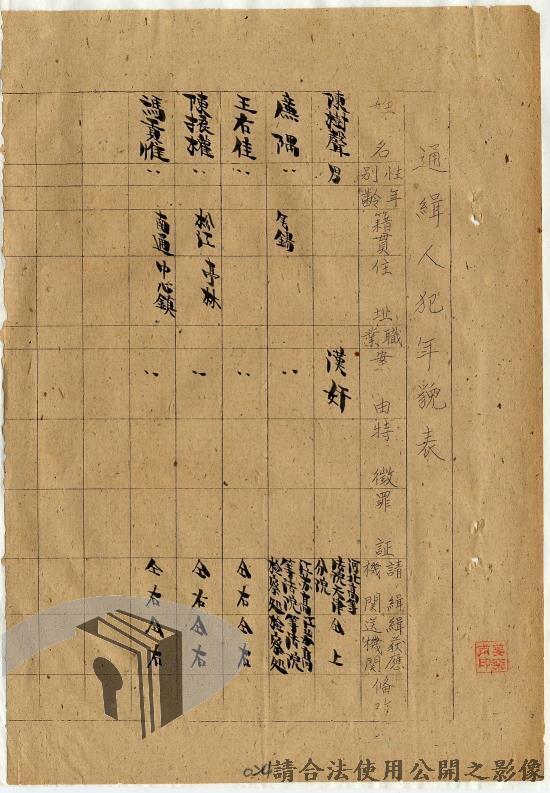 通緝人犯年貌表
姓名 性別 年齡 籍貫 住址 職業 案由 特徵 罪証 請緝機關 緝獲應送機關 備
陳樹聲 男 漢奸 河北高等法院天津分院 仝上
應隅 〃 無錫 〃 江蘇高等法院檢察处 江蘇高等法院檢察処
王右佳 〃 〃 仝右 仝右
陳振權 〃 松江 亭林 〃 仝右 仝右
馮夏惟 〃 南通 中心鎮 〃 仝右 仝右
024
請合法使用公開之影像